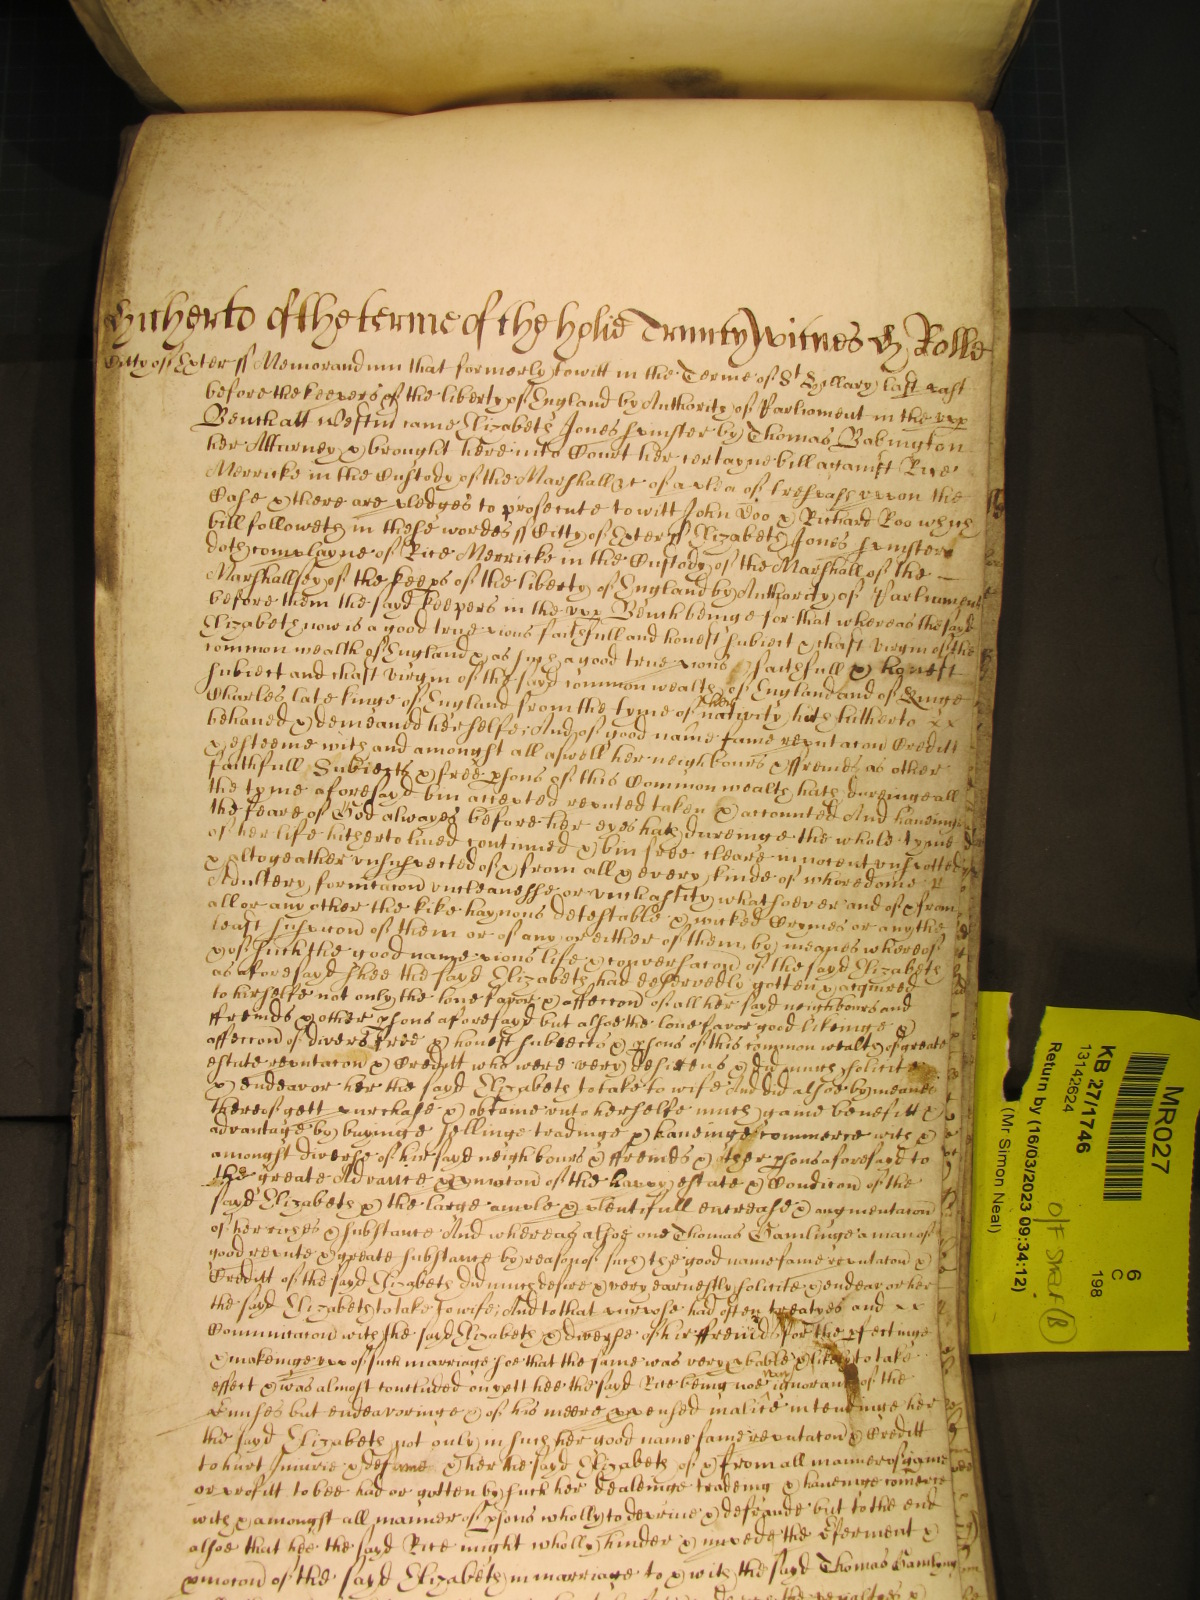 Hitherto of the terme of the holie Trinity witnes H Rolle
Citty of Exter ss Memorandum that formerly to witt in the Terme of St Hillary last past
before the keepers of the liberty of England by Authority of Parliament in the vpp
Bench att Westm came Elizabeth Jones spinster by Thomas Babington
her Atturney & brought here into Court her certayne bill against Rice
Merricke in the Custody of the Marshall &c of a plea of trespasse vpon the
Case & there are pledges to prosecute to witt John Doo & Richard Roo which
bill followeth in these wordes ss Citty of Exter ss Elizabeth Jones spinster
doth complayne of Rice Merricke in the Custody of the Marshall of the
Marshallsey of the keeps of the liberty of England by Authority of Parliament
before them the sayd keepers in the vpp Bench beinge for that whereas the sayd
Elizabeth now is a good true pious faithfull and honest subiect & chast virgin of the
common wealth of England & as such a good true pious faithfull & honest
subiect and chast virgin of the sayd common wealth of England and of
Charles late kinge of England from the tyme of her nativity hath hitherto
behaued & demeaned herselfe And of good name fame reputacon Creditt
& esteeme with and amongst all aswell her neighbours & ffreinds as other
faithfull Subiects & free psons of this Common wealth hath dureinge all
the tyme aforesayd bin accepted reputed taken & accounted And haueinge
the feare of God alwayes before her eyes hath dureinge the whole tyme
of her life hitherto liued continued & bin free cleare innocent vnspotted
& altogeather vnsuspected of & from all & every kinde of whoredome
Adultery fornicacon vncleanesse or vnchastity whatsoever and of & from
all or any other the like haynous detestable & wicked Crymes or any the
least suspicon of them or of any or either of them by meanes whereof
& of such the good name pious life & conversacon of the sayd Elizabeth
as aforesayd shee the sayd Elizabeth had deservedly gotten & acquired
to herselfe not only the loue favor & affeccon of all her sayd neighbours and
ffreinds & other psons aforesayd but alsoe the loue favor good likeinge &
affeccon of divers free & honest subiects & psons of this common wealth of greate
estate reputacon & Creditt who were very desireus & did much solicite
& endeavor her the sayd Elizabeth to take to wife And did alsoe by meanes
thereof gett purchase & obtaine vnto herselfe much game benefitt &
advantage by buyinge sellinge tradinge & haueinge commerce with &
amongst diverse of her sayd neighbours & ffreinds & other psons aforesayd to
the greate Advance of the happy estate & Condicon of the
sayd Elizabeth & the large ample & plentifull encrease & augmentacon
of her riches & substance And whereas alsoe one Thomas Gamlinge a man of
good repute & greate substance by reason of such the good name fame reputacon &
Creditt of the sayd Elizabeth did much desire & very earnestly solicite & endeavor her
the sayd Elizabeth to take to wife And to that purpose had often treatyes and
Communicacon with the sayd Elizabeth & diverse of her ffreinds for the pfectinge
& makeinge vpp of such marriage soe that the same was very pbable & likely to take
effect & was almost concluded on yett hee the sayd Rice being not ignorant of the
pmises but endeavoringe & of his meere malice intendinge her
the sayd Elizabeth not only in such her good name fame reputacon & Creditt
to hurt iniurie & defame & her the sayd Elizabeth of & from all manner of game
or profitt to bee had or gotten by such her dealeinge tradeing & haueinge comerce
with & amongst all manner of psons wholly to deprive & defraude but to the end
alsoe that hee the sayd Rice might wholly hinder & impede the pferment &
pmocon of the sayd Elizabeth in marriage to & with the sayd Thomas Gamlyng
MR027
KB 27/1746
13142624
Return by (16/03/2023 09:34:12)
(Mr Simon Neal)
6
C
198